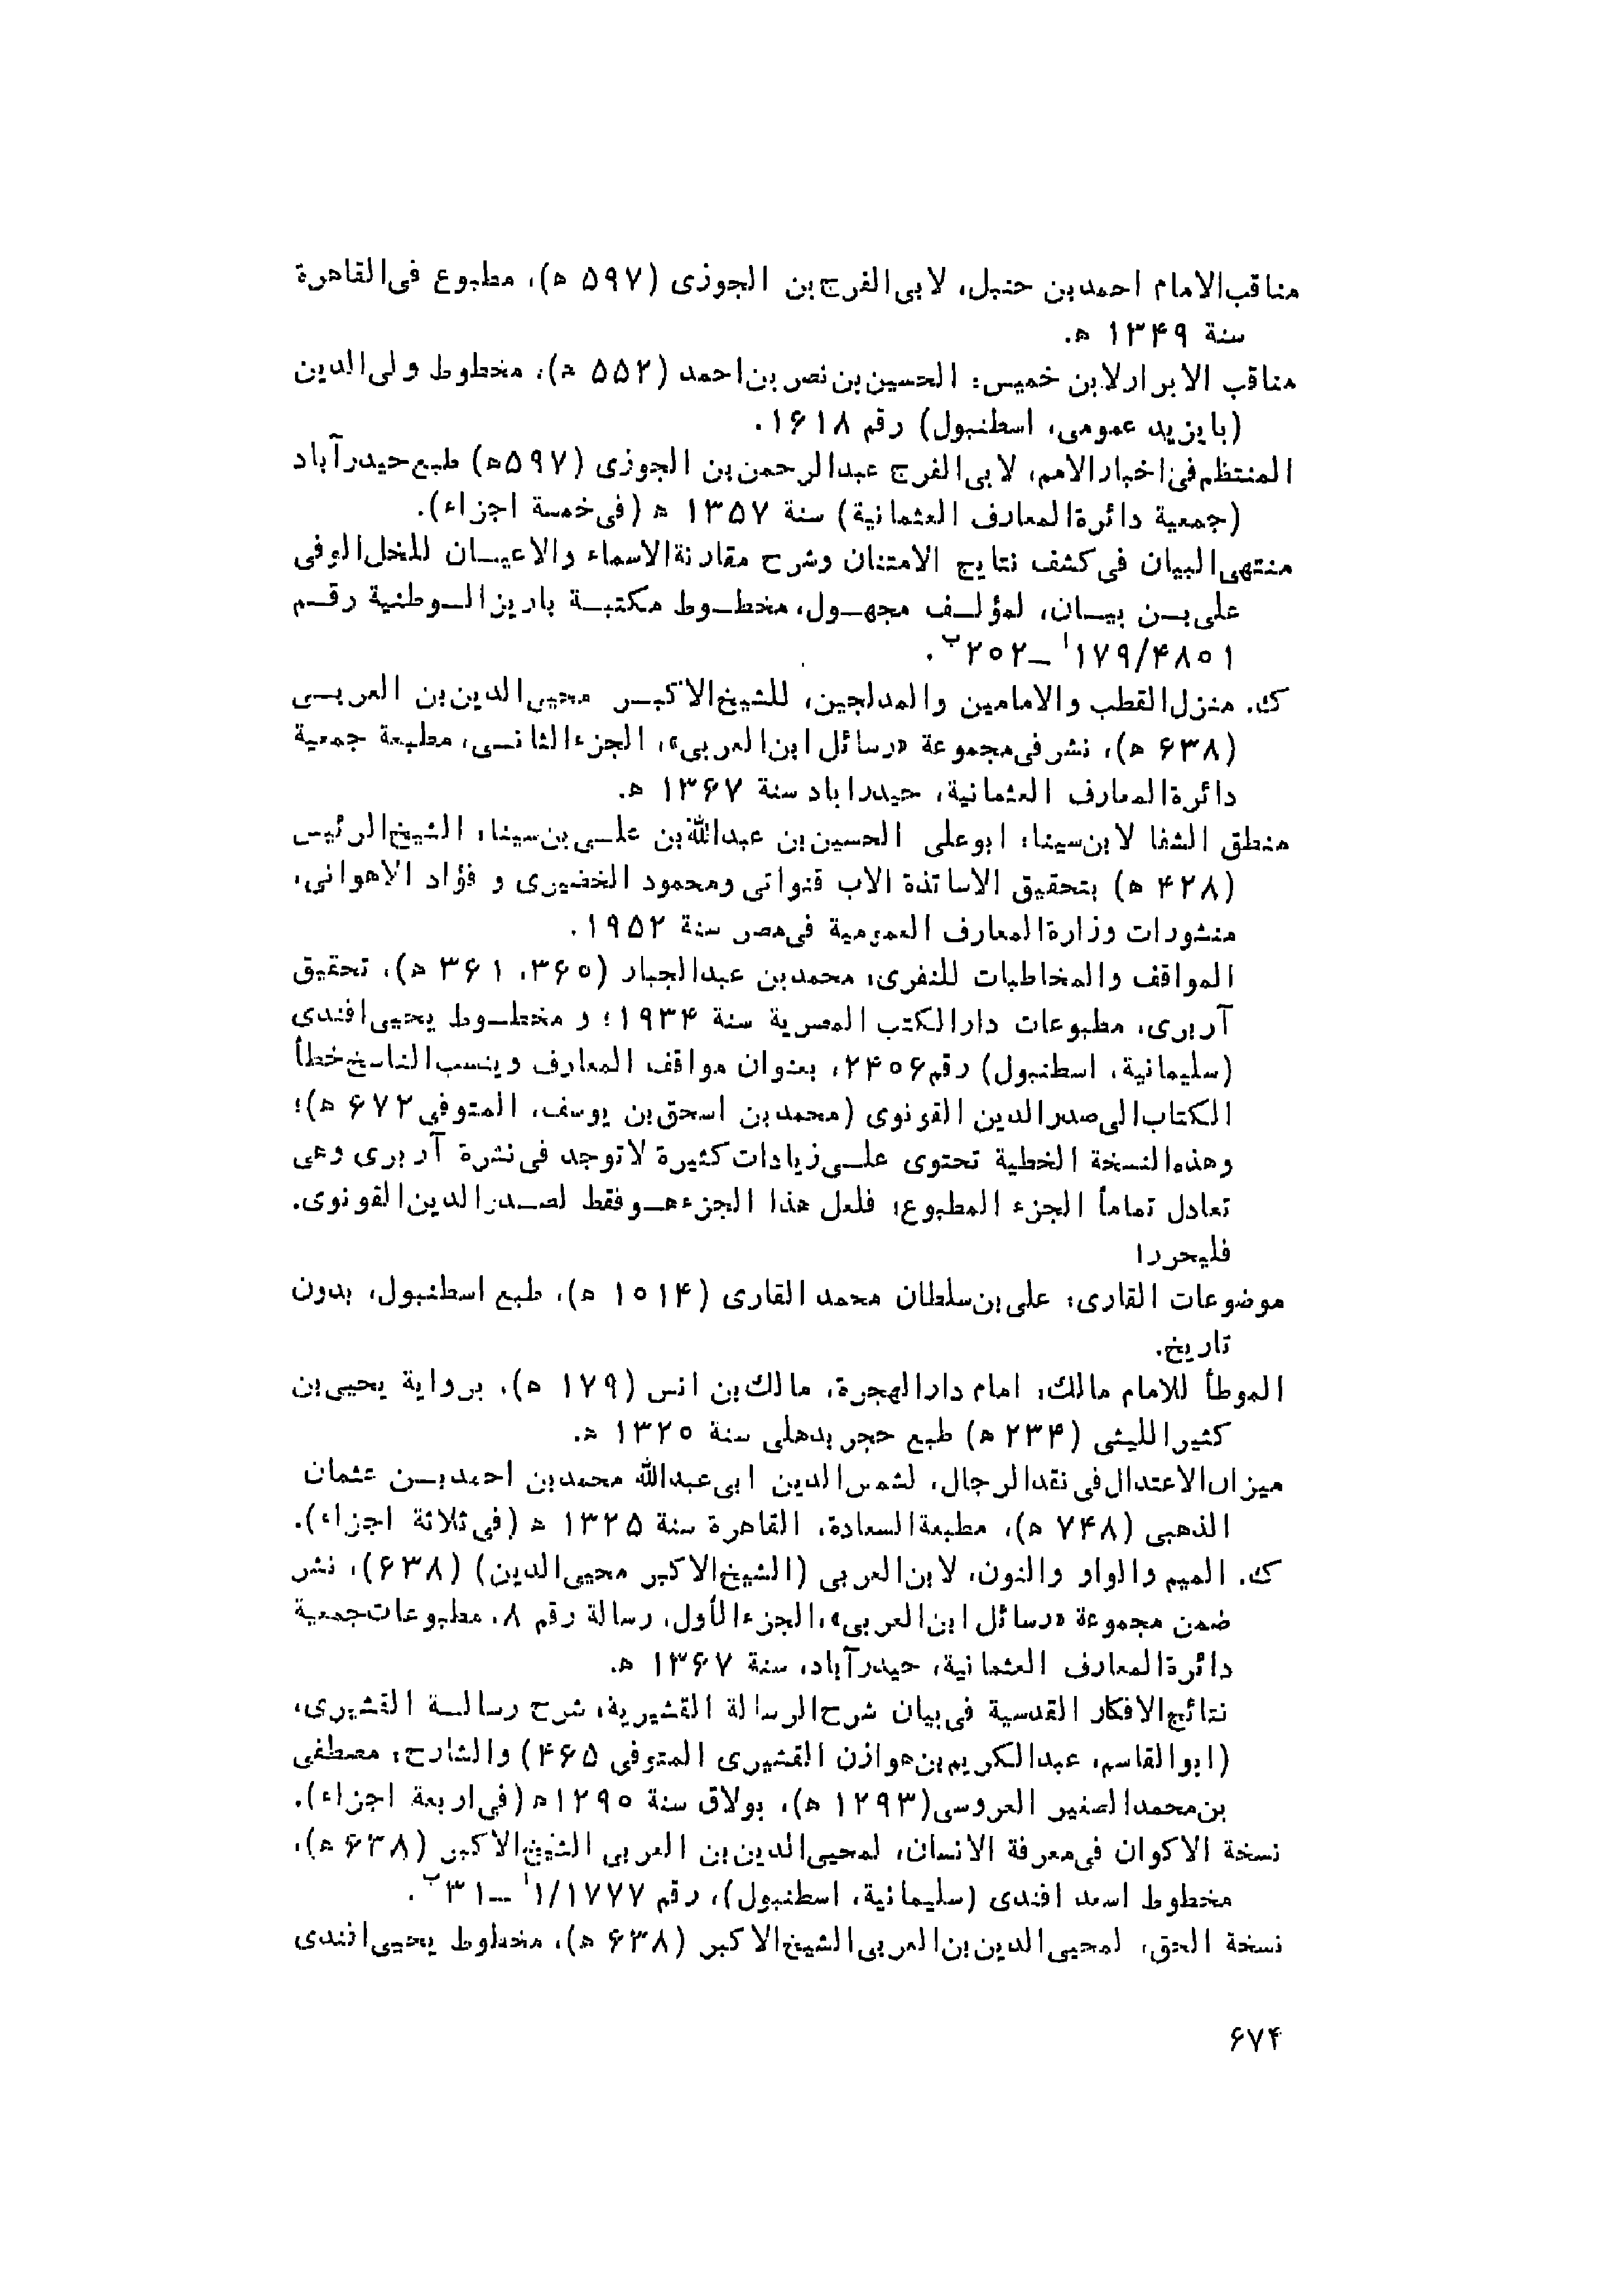 مناقب‌الامام احمدبن حنبل، لابی‌الفرج‌بن الجوزی (۵۹۷ ه)، مطبوع فی‌القاهرة
سنة ۱۳۴۹ ه.
مناقب الابرارلابن خمیس: الحسین‌بن نصربن‌احمد (۵۵۲ ه)، مخطوط ولی‌الدین
(بایزید عمومی، اسطنبول) رقم ۱۶۱۸.
المنتظم‌فی‌اخبارالامم، لابی‌الفرج عبدالرحمن‌بن الجوزی (۵۹۷ه) طبع‌حیدرآباد
(جمعیة دائرةالمعارف العثمانیة) سنة ۱۳۵۷ ه (فی‌خمسة اجزاء).
منتهی‌البیان فی‌کشف نتایج الامتنان وشرح مقارنةالاسماء والاعیــان للخل‌الوفی
علی‌بــن بیــان، لمؤلــف مجهــول، مخطــوط مکتبــة باریزالــوطنیة رقــم
۱۷۹/۴۸۰۱أ ــ۲۰۲ب.
ك. منزل‌القطب والامامین والمدلجین، للشیخ‌الاکبــر محیی‌الدین‌بن العربــی
(۶۳۸ ه)، نشرفی‌مجموعة «رسائل ابن‌العربی»، الجزءالثانــی، مطبعة جمعیة
دائرةالمعارف العثمانیة، حیدراباد سنة ۱۳۶۷ ه.
منطق الشفا لابن‌سینا: ابوعلی الحسین‌بن عبدالله‌بن علــی‌بن‌سینا، الشیخ‌الرئیس
(۴۲۸ ه) بتحقیق الاساتذة الاب قنواتی ومحمود الخضیری و فؤاد الاهوانی،
منشورات وزارةالمعارف العمومیة فی‌مصر سنة ۱۹۵۲.
المواقف والمخاطبات للنفری: محمدبن عبدالجبار (۳۶۰، ۳۶۱ ه)، تحقیق
آربری، مطبوعات دارالکتب المصریة سنة ۱۹۳۴؛ و مخطــوط یحیی‌افندی
(سلیمانیة، اسطنبول) رقم۲۴۰۶، بعنوان مواقف المعارف وینسب‌الناسخ‌خطأ
الکتاب‌الی‌صدرالدین القونوی (محمدبن اسحق‌بن یوسف، المتوفی۶۷۲ ه)؛
وهذه‌النسخة الخطیة تحتوی علــی‌زیادات کثیرة لاتوجد فی‌نشرة آربری وهی
تعادل تماماً الجزء المطبوع؛ فلعل هذا الجزءهــوفقط لصــدرالدین‌القونوی.
فلیحرر!
موضوعات القاری: علی‌بن‌سلطان محمد القاری (۱۰۱۴ ه)، طبع اسطنبول، بدون
تاریخ.
الموطأ للامام مالك: امام دارالهجرة، مالك‌بن انس (۱۷۹ ه)، بروایة یحیی‌بن
کثیراللیثی (۲۳۴ ه) طبع حجر بدهلی سنة ۱۳۲۰ ه.
میزان‌الاعتدال‌فی‌نقدالرجال، لشمس‌الدین ابی‌عبدالله محمدبن احمدبــن عثمان
الذهبی (۷۴۸ ه)، مطبعةالسعادة، القاهرة سنة ۱۳۲۵ ه (فی‌ثلاثة اجزاء).
ك. المیم والواو والنون، لابن‌العربی (الشیخ‌الاکبر محیی‌الدین) (۶۳۸)، نشر
ضمن مجموعة «رسائل ابن‌العربی»،الجزءالأول، رسالة رقم ۸، مطبوعات‌جمعیة
دائرةالمعارف العثمانیة، حیدرآباد، سنة ۱۳۶۷ ه.
نتائج‌الافکار القدسیة فی‌بیان شرح‌الرسالة القشیریة، شرح رسالــة القشیری،
(ابوالقاسم، عبدالکریم‌بن‌هوازن القشیری المتوفی ۴۶۵) والشارح: مصطفی
بن‌محمدالصغیر العروسی(۱۲۹۳ ه)، بولاق سنة ۱۲۹۰ه (فی‌اربعة اجزاء).
نسخة الاکوان فی‌معرفة الانسان، لمحیی‌الدین‌بن العربی الشیخ‌الاکبر (۶۳۸ ه)،
مخطوط اسعد افندی (سلیمانیة، اسطنبول)، رقم ۱/۱۷۷۷أ ــ۳۱ب.
نسخة الحق، لمحیی‌الدین‌بن‌العربی‌الشیخ‌الاکبر (۶۳۸ ه)، مخطوط یحیی‌افندی
۶۷۴